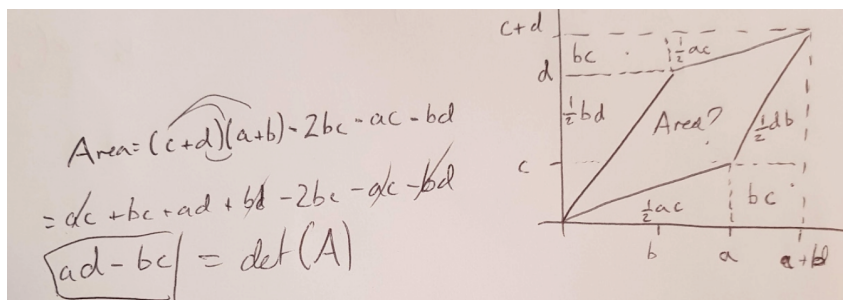 Area = (c+d)(a+b) - 2bc - ac - bd
= ac + bc + ad + bd - 2bc - ac - bd
ad - bc = det(A)
c+d
bc
½ac
d
½bd
Area?
½db
c
½ac
bc
b
a
a+b